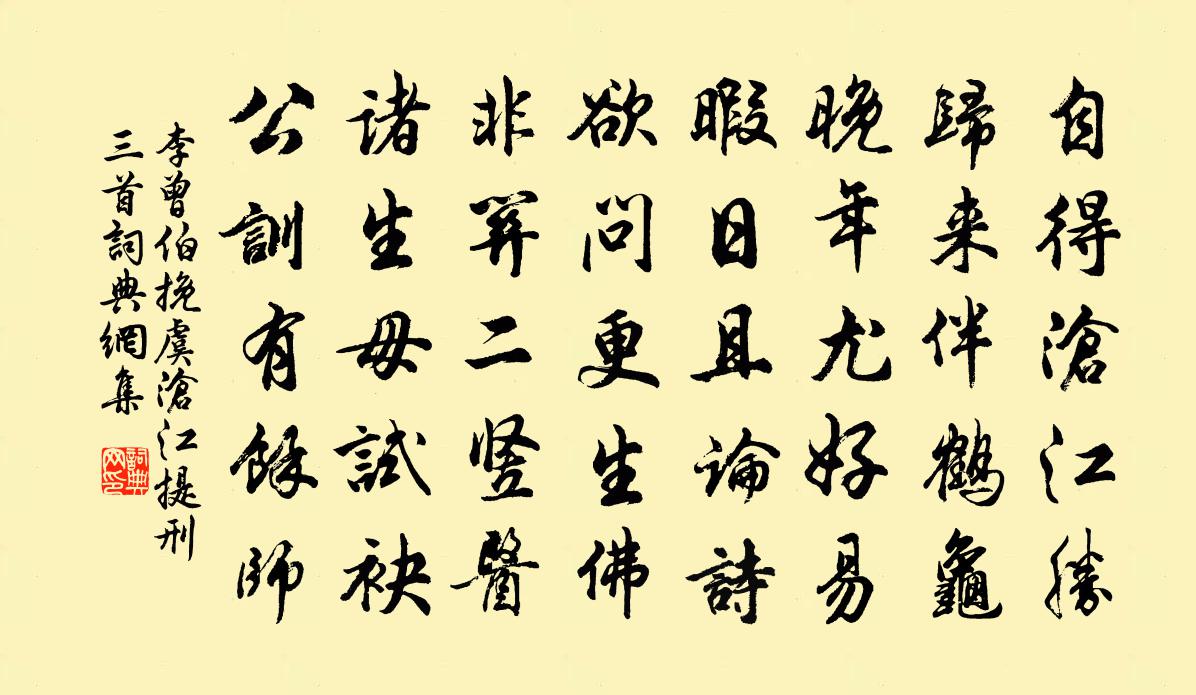 自得滄江勝
歸來伴鶴龜
晚年尤好易
暇日且論詩
欲問更生佛
非關二竖醫
諸生毋試袂
公訓有餘師
李曾伯挽虞滄江提刑
三首詞典網集
詞典網印